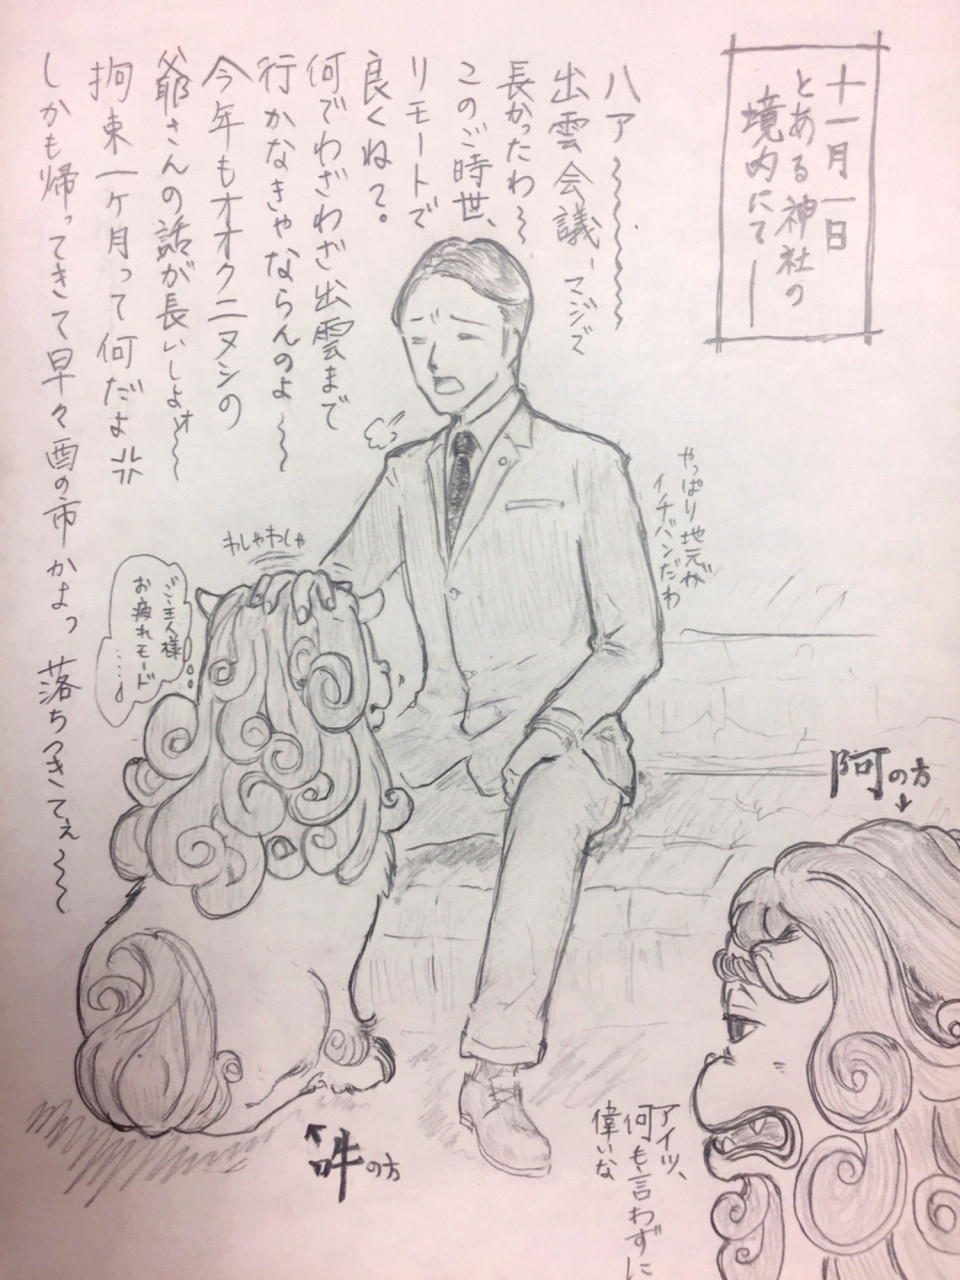 十一月一日
とある神社の
境内にて―
ハア～～～～～
出雲会議、マジで
長かったわ～
このご時世、
リモートで
良くね？。
何でわざわざ出雲まで
行かなきゃならんのよ～～
今年もオオクニヌシの
爺さんの話が長いしよォ～～
拘束一ヶ月って何だよ
しかも帰ってきて早々酉の市かよっ 落ちつきてぇ～～
やっぱり地元が
イチバンだわ
わしゃわしゃ
ご主人様
お疲れモード
……。
阿の方
吽の方
アイツ、
何も言わずに
偉いな